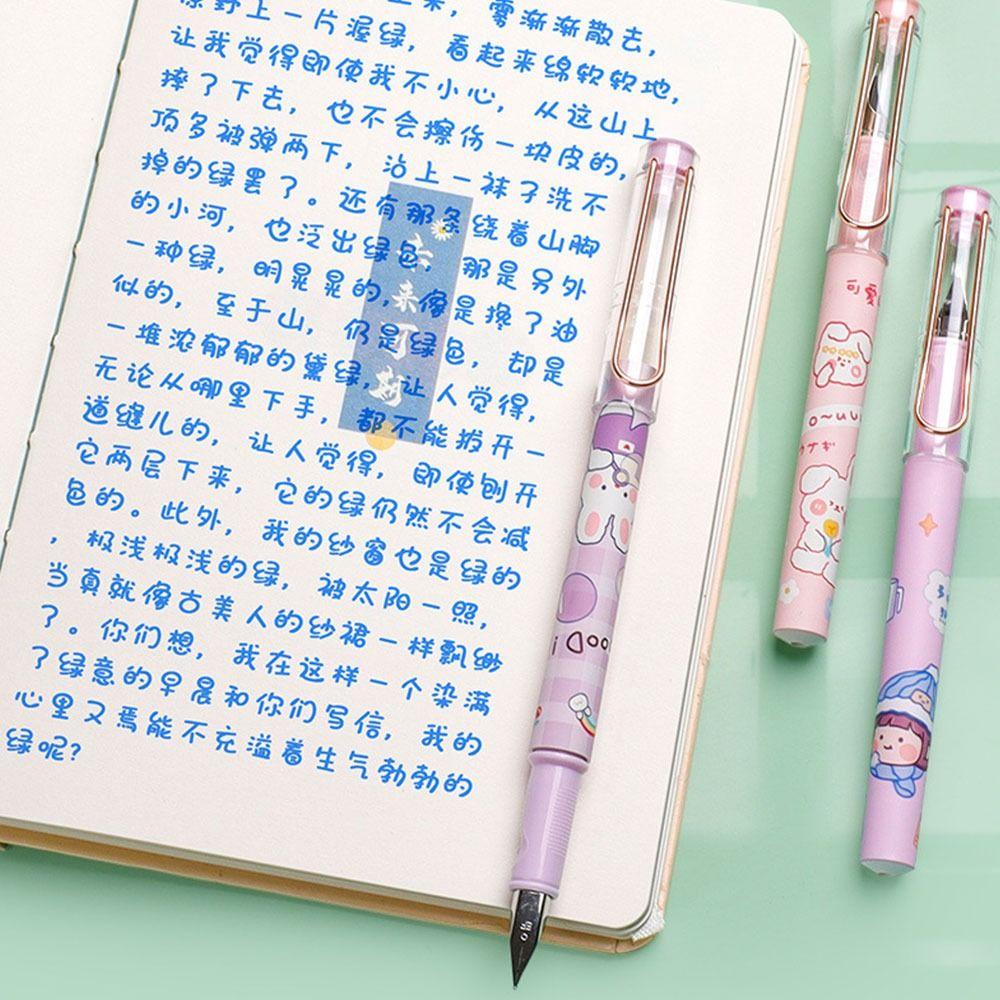 上来，雾渐渐散去，
原野上一片渥绿，看起来绵软软地，
让我觉得即使我不小心，从这山上
摔了下去，也不会擦伤一块皮的，
顶多被弹两下，沾上一袜子洗不
掉的绿罢了。还有那条绕着山脚
的小河，也泛出绿色，那是另外
一种绿，明晃晃的，像是搀了油
似的，至于山，仍是绿色，却是
一堆浓郁郁的黛绿，让人觉得，
无论从哪里下手，都不能拨开一
道缝儿的，让人觉得，即使刨开
它两层下来，它的绿仍然不会减
色的。此外，我的纱窗也是绿的
，极浅极浅的绿，被太阳一照，
当真就像古美人的纱裙一样飘缈
了。你们想，我在这样一个染满
了绿意的早晨和你们写信，我的
心里又焉能不充溢着生气勃勃的
绿呢?
来可期
可爱
o~uu
ウサギ